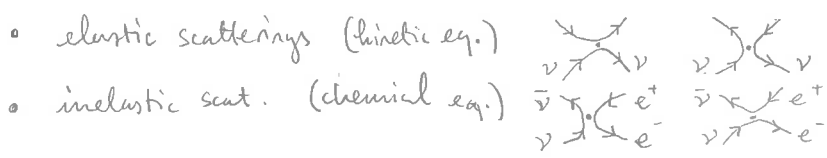 • elastic scatterings (kinetic eq.) ν ν ν ν
• inelastic scat. (chemical eq.) ν̄ e⁺ ν e⁻ ν̄ e⁺ ν e⁻